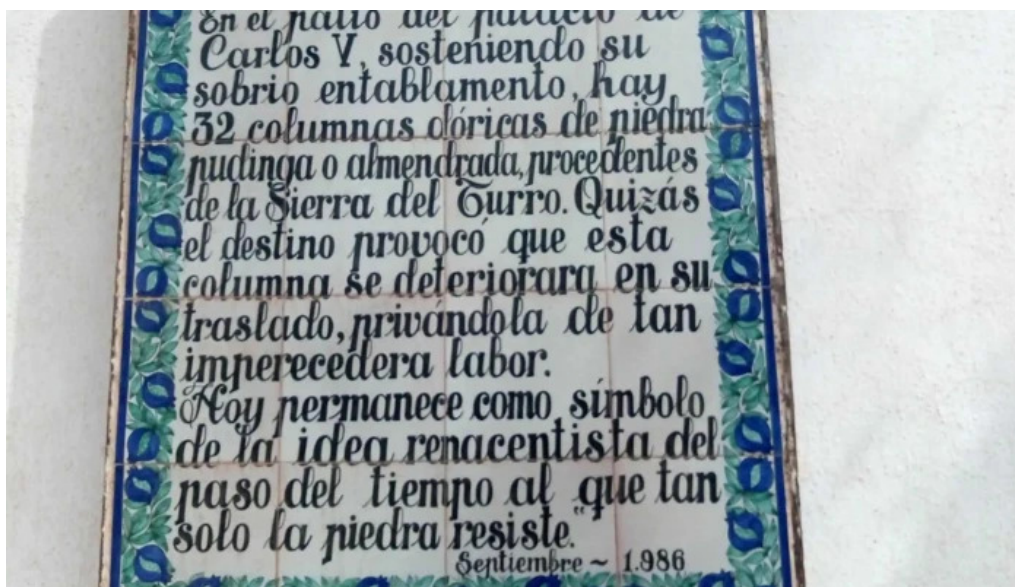 En el patio del palacio de
Carlos V, sosteniendo su
sobrio entablamento, hay
32 columnas dóricas de piedra
pudinga o almendrada, procedentes
de la Sierra del Turro. Quizás
el destino provocó que esta
columna se deteriorara en su
traslado, privándola de tan
imperecedera labor.
Hoy permanece como símbolo
de la idea renacentista del
paso del tiempo al que tan
solo la piedra resiste."
Septiembre ~ 1.986